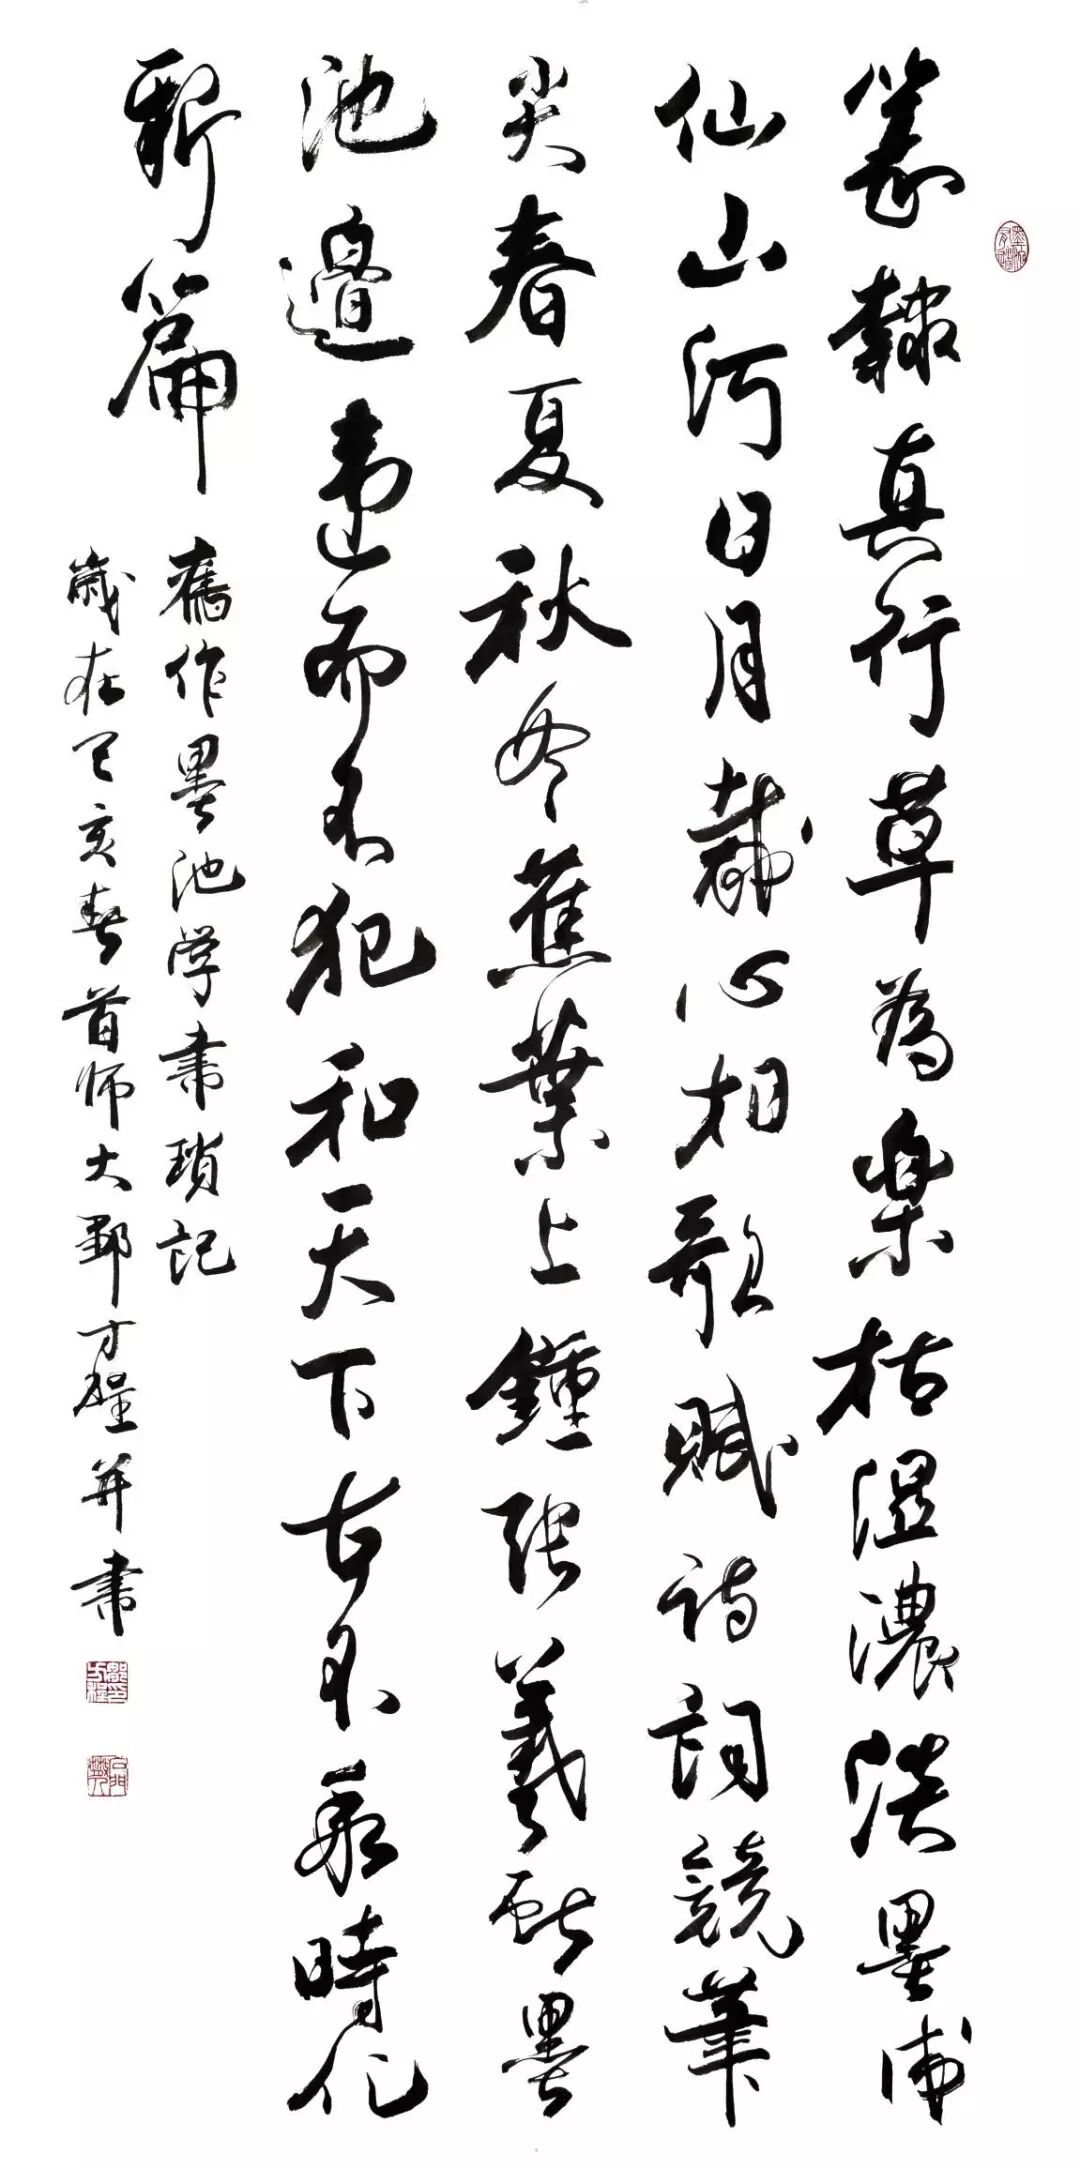 篆隸真行草為樂枯濕濃淡墨甫
仙山河日月載心相歌賦詩詞競筆
尖春夏秋冬蕉葉上鍾張羲獻墨
池邊違而不犯和天下古不時代
新篇
舊作墨池学書瑣記
歲在己亥春首师大鄒方程并書